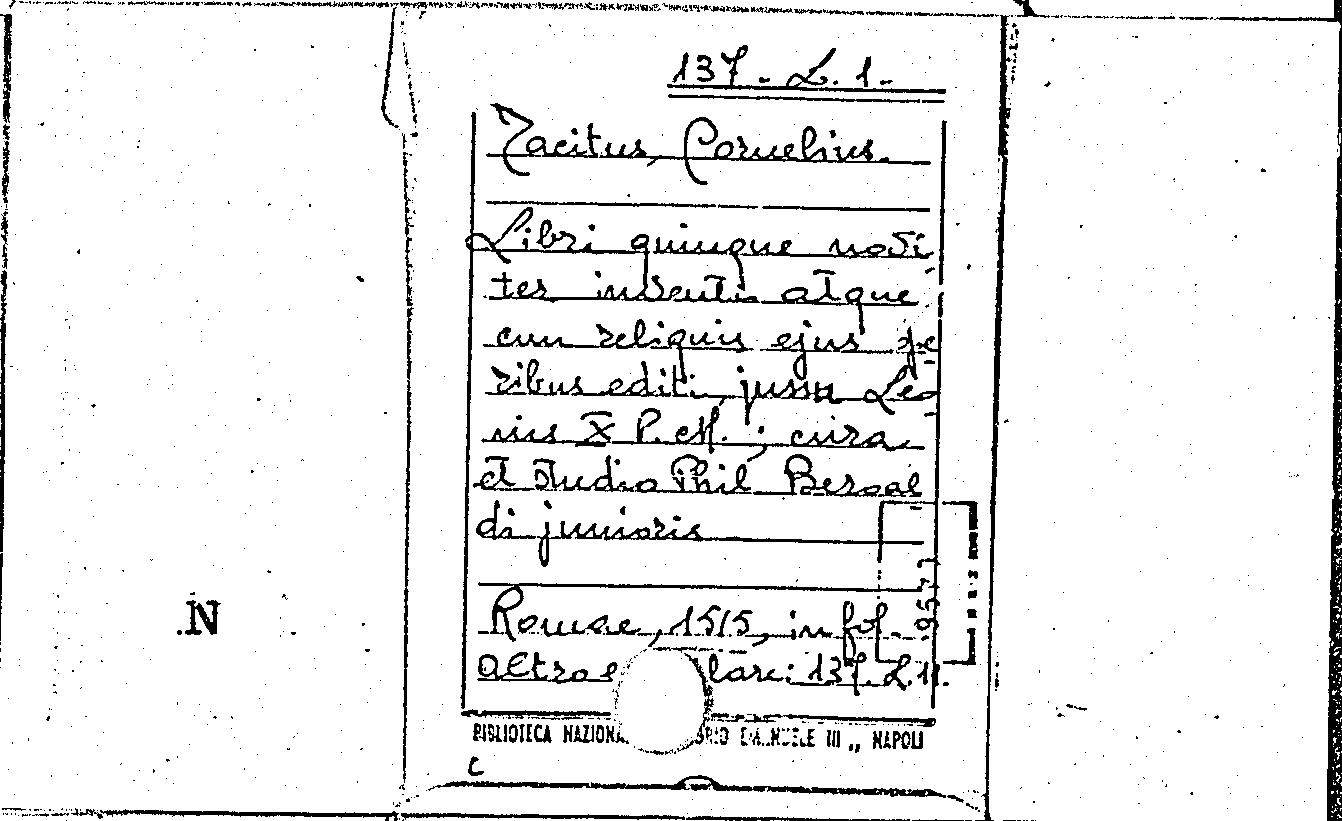 137. L. 1.
Tacitus, Cornelius.
Libri quinque novi
ter inventis atque
cum reliquis ejus
ribus editi, jussu Leo
nis X P. M.; cura
et studio Phil Beroal
di junioris
Romae, 1515, in fol.
altro e lare: 137. L. 11.
BIBLIOTECA NAZIONA RIO EMANUELE III „ NAPOLI
N